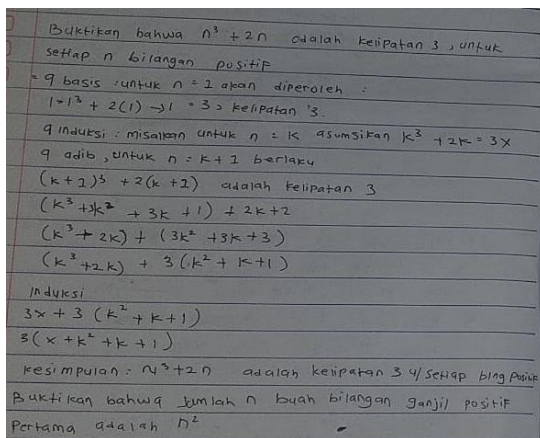 Buktikan bahwa n³ + 2n adalah kelipatan 3, untuk
setiap n bilangan positif
= 9 basis : untuk n = 1 akan diperoleh :
1 = 1³ + 2(1) → 1 = 3, kelipatan 3.
9 induksi : misalkan untuk n = k asumsikan k³ + 2k = 3x
9 adib, untuk n = k + 1 berlaku
(k + 1)³ + 2(k + 1) adalah kelipatan 3
(k³ + 3k² + 3k + 1) + 2k + 2
(k³ + 2k) + (3k² + 3k + 3)
(k³ + 2k) + 3(k² + k + 1)
Induksi
3x + 3 (k² + k + 1)
3(x + k² + k + 1)
kesimpulan : n³ + 2n adalah kelipatan 3 u/ setiap blng positif
Buktikan bahwa jumlah n buah bilangan ganjil positif
Pertama adalah n²